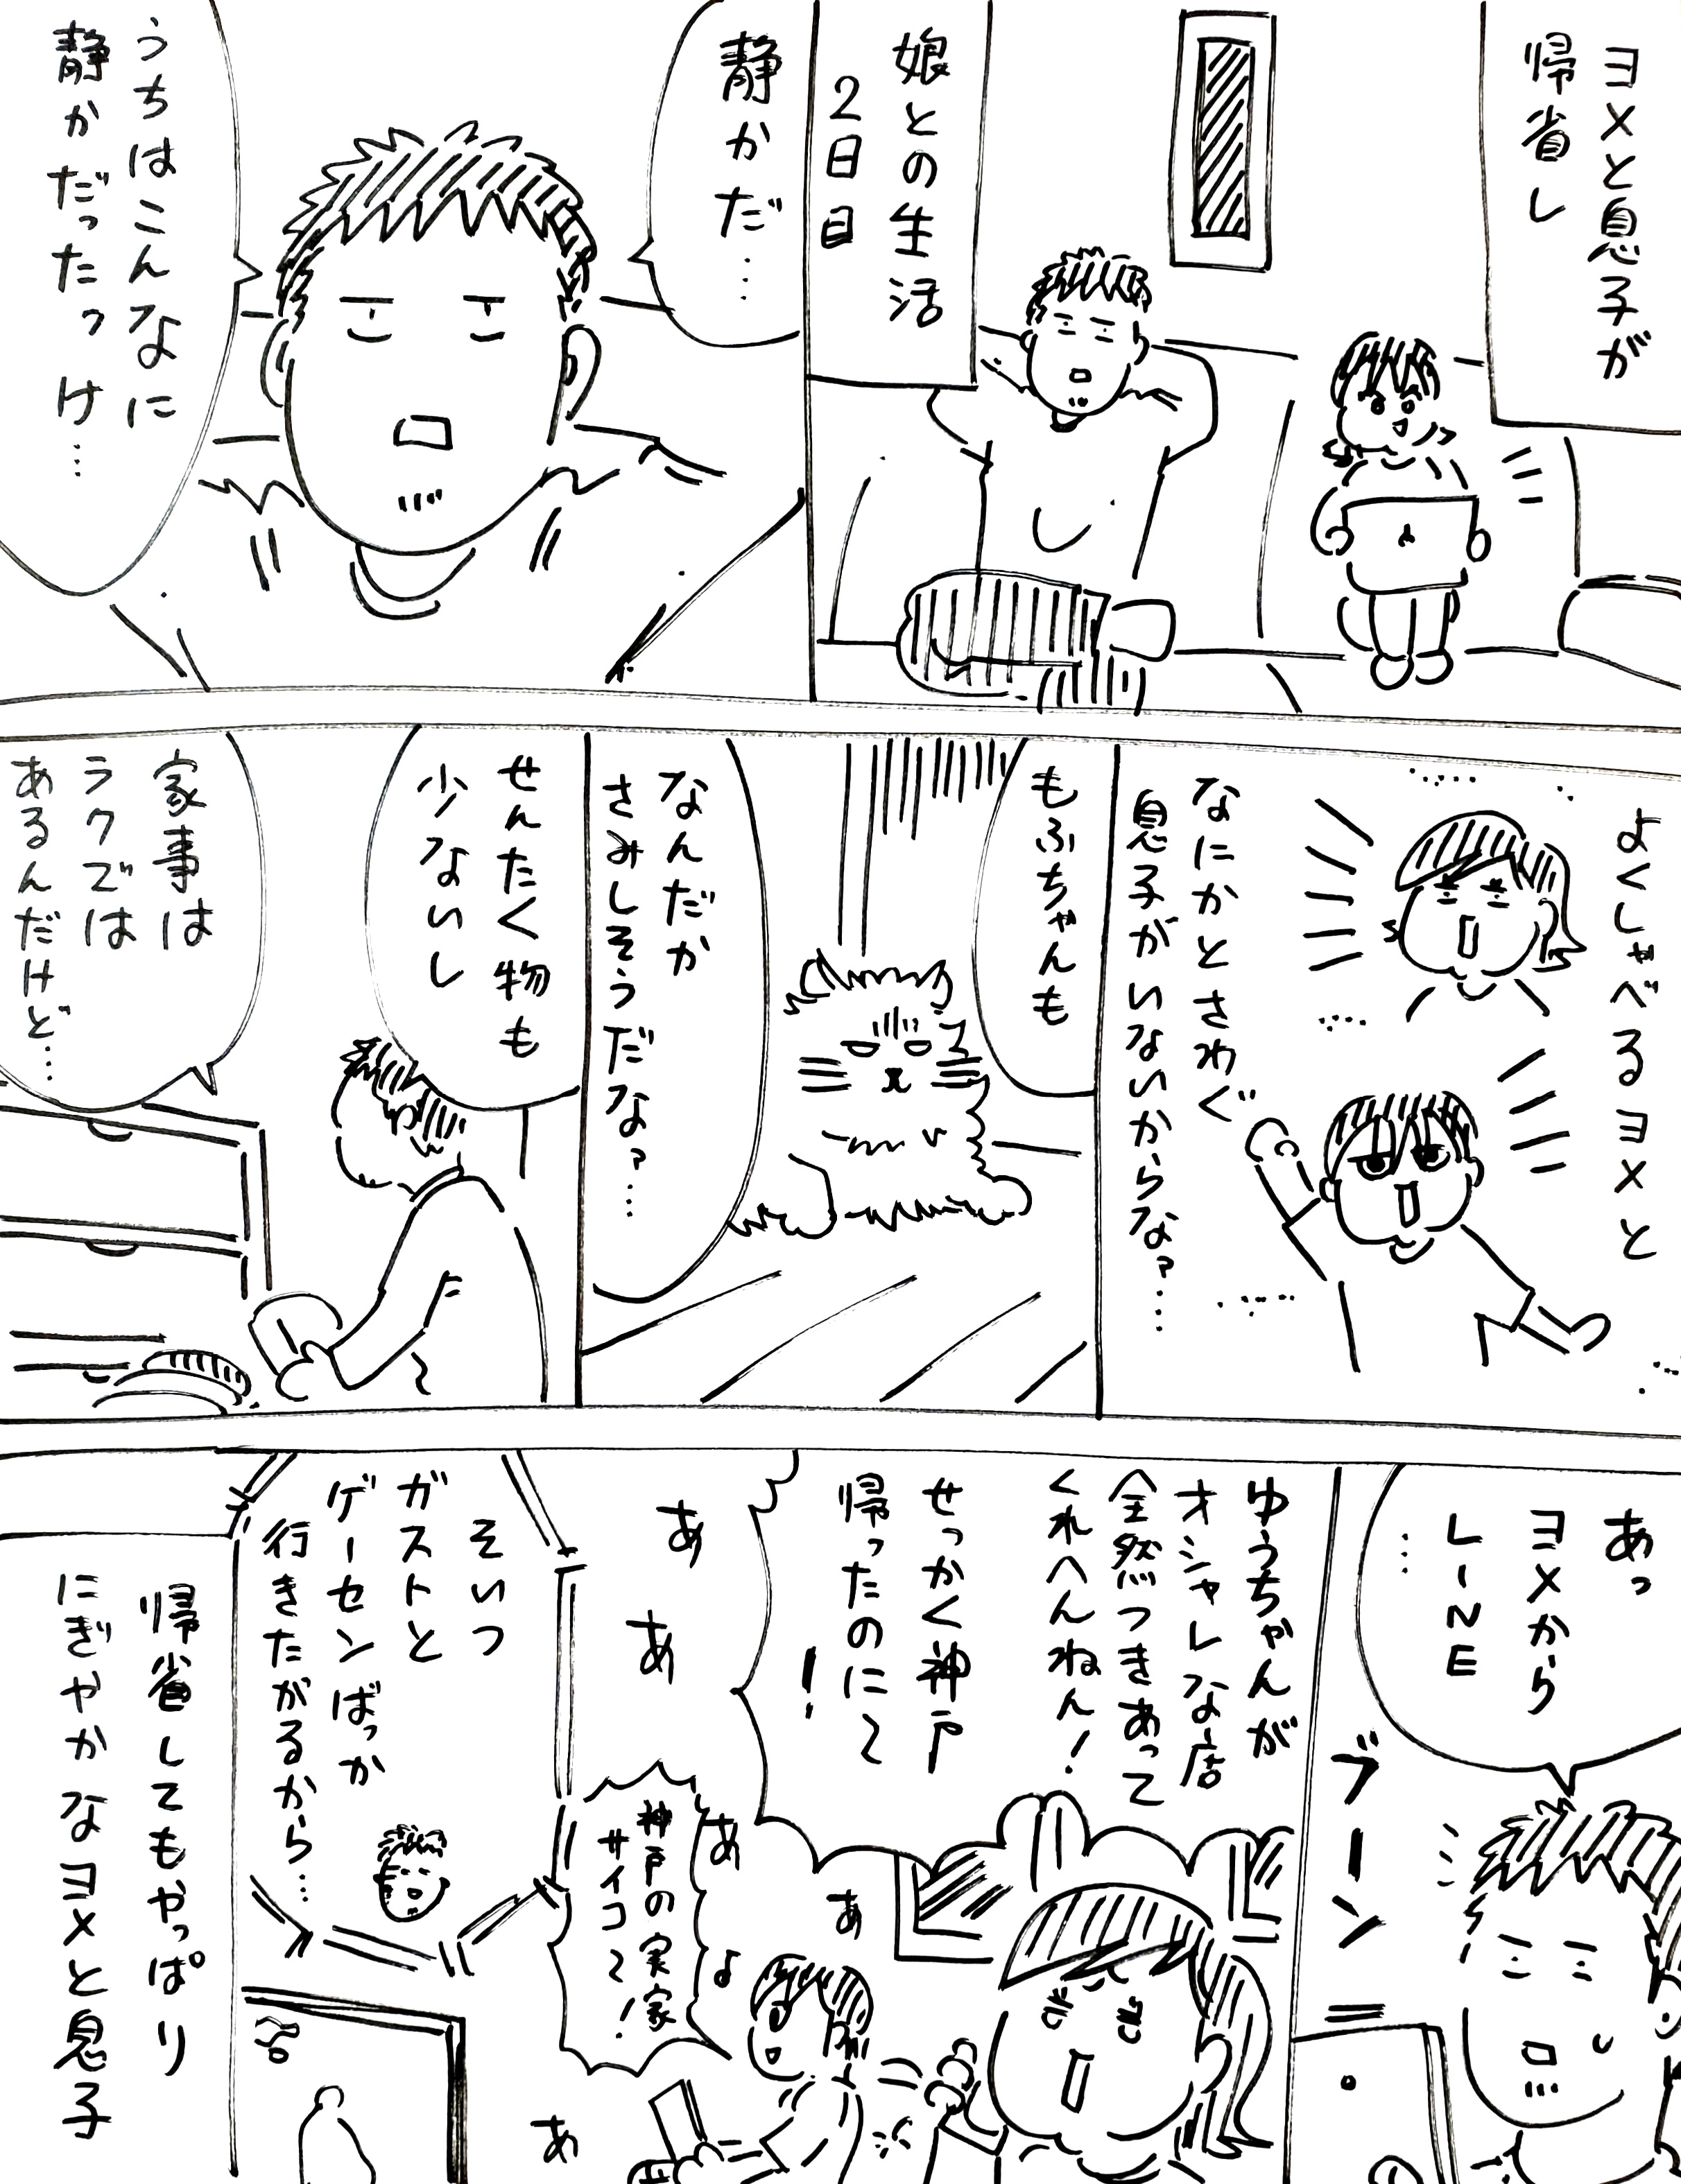 ヨメと息子が
帰省し
娘との生活
2日目
静かだ…
うちはこんなに
静かだったっけ…
よくしゃべるヨメと
なにかとさわぐ
息子がいないからな…
もふちゃんも
なんだか
さみしそうだな…
せんたく物も
少ないし
家事は
ラクでは
あるんだけど…
あっ
ヨメから
LINE
…
ブーン
ゆうちゃんが
オシャレな店
全然つきあって
くれへんねん！
せっかく神戸
帰ったのに〜
！
あ
あ
あ
あ
よ
あ
神戸の実家
サイコ〜！
そいつ
ガストと
ゲーセンばっか
行きたがるから…
帰省してもやっぱり
にぎやかなヨメと息子